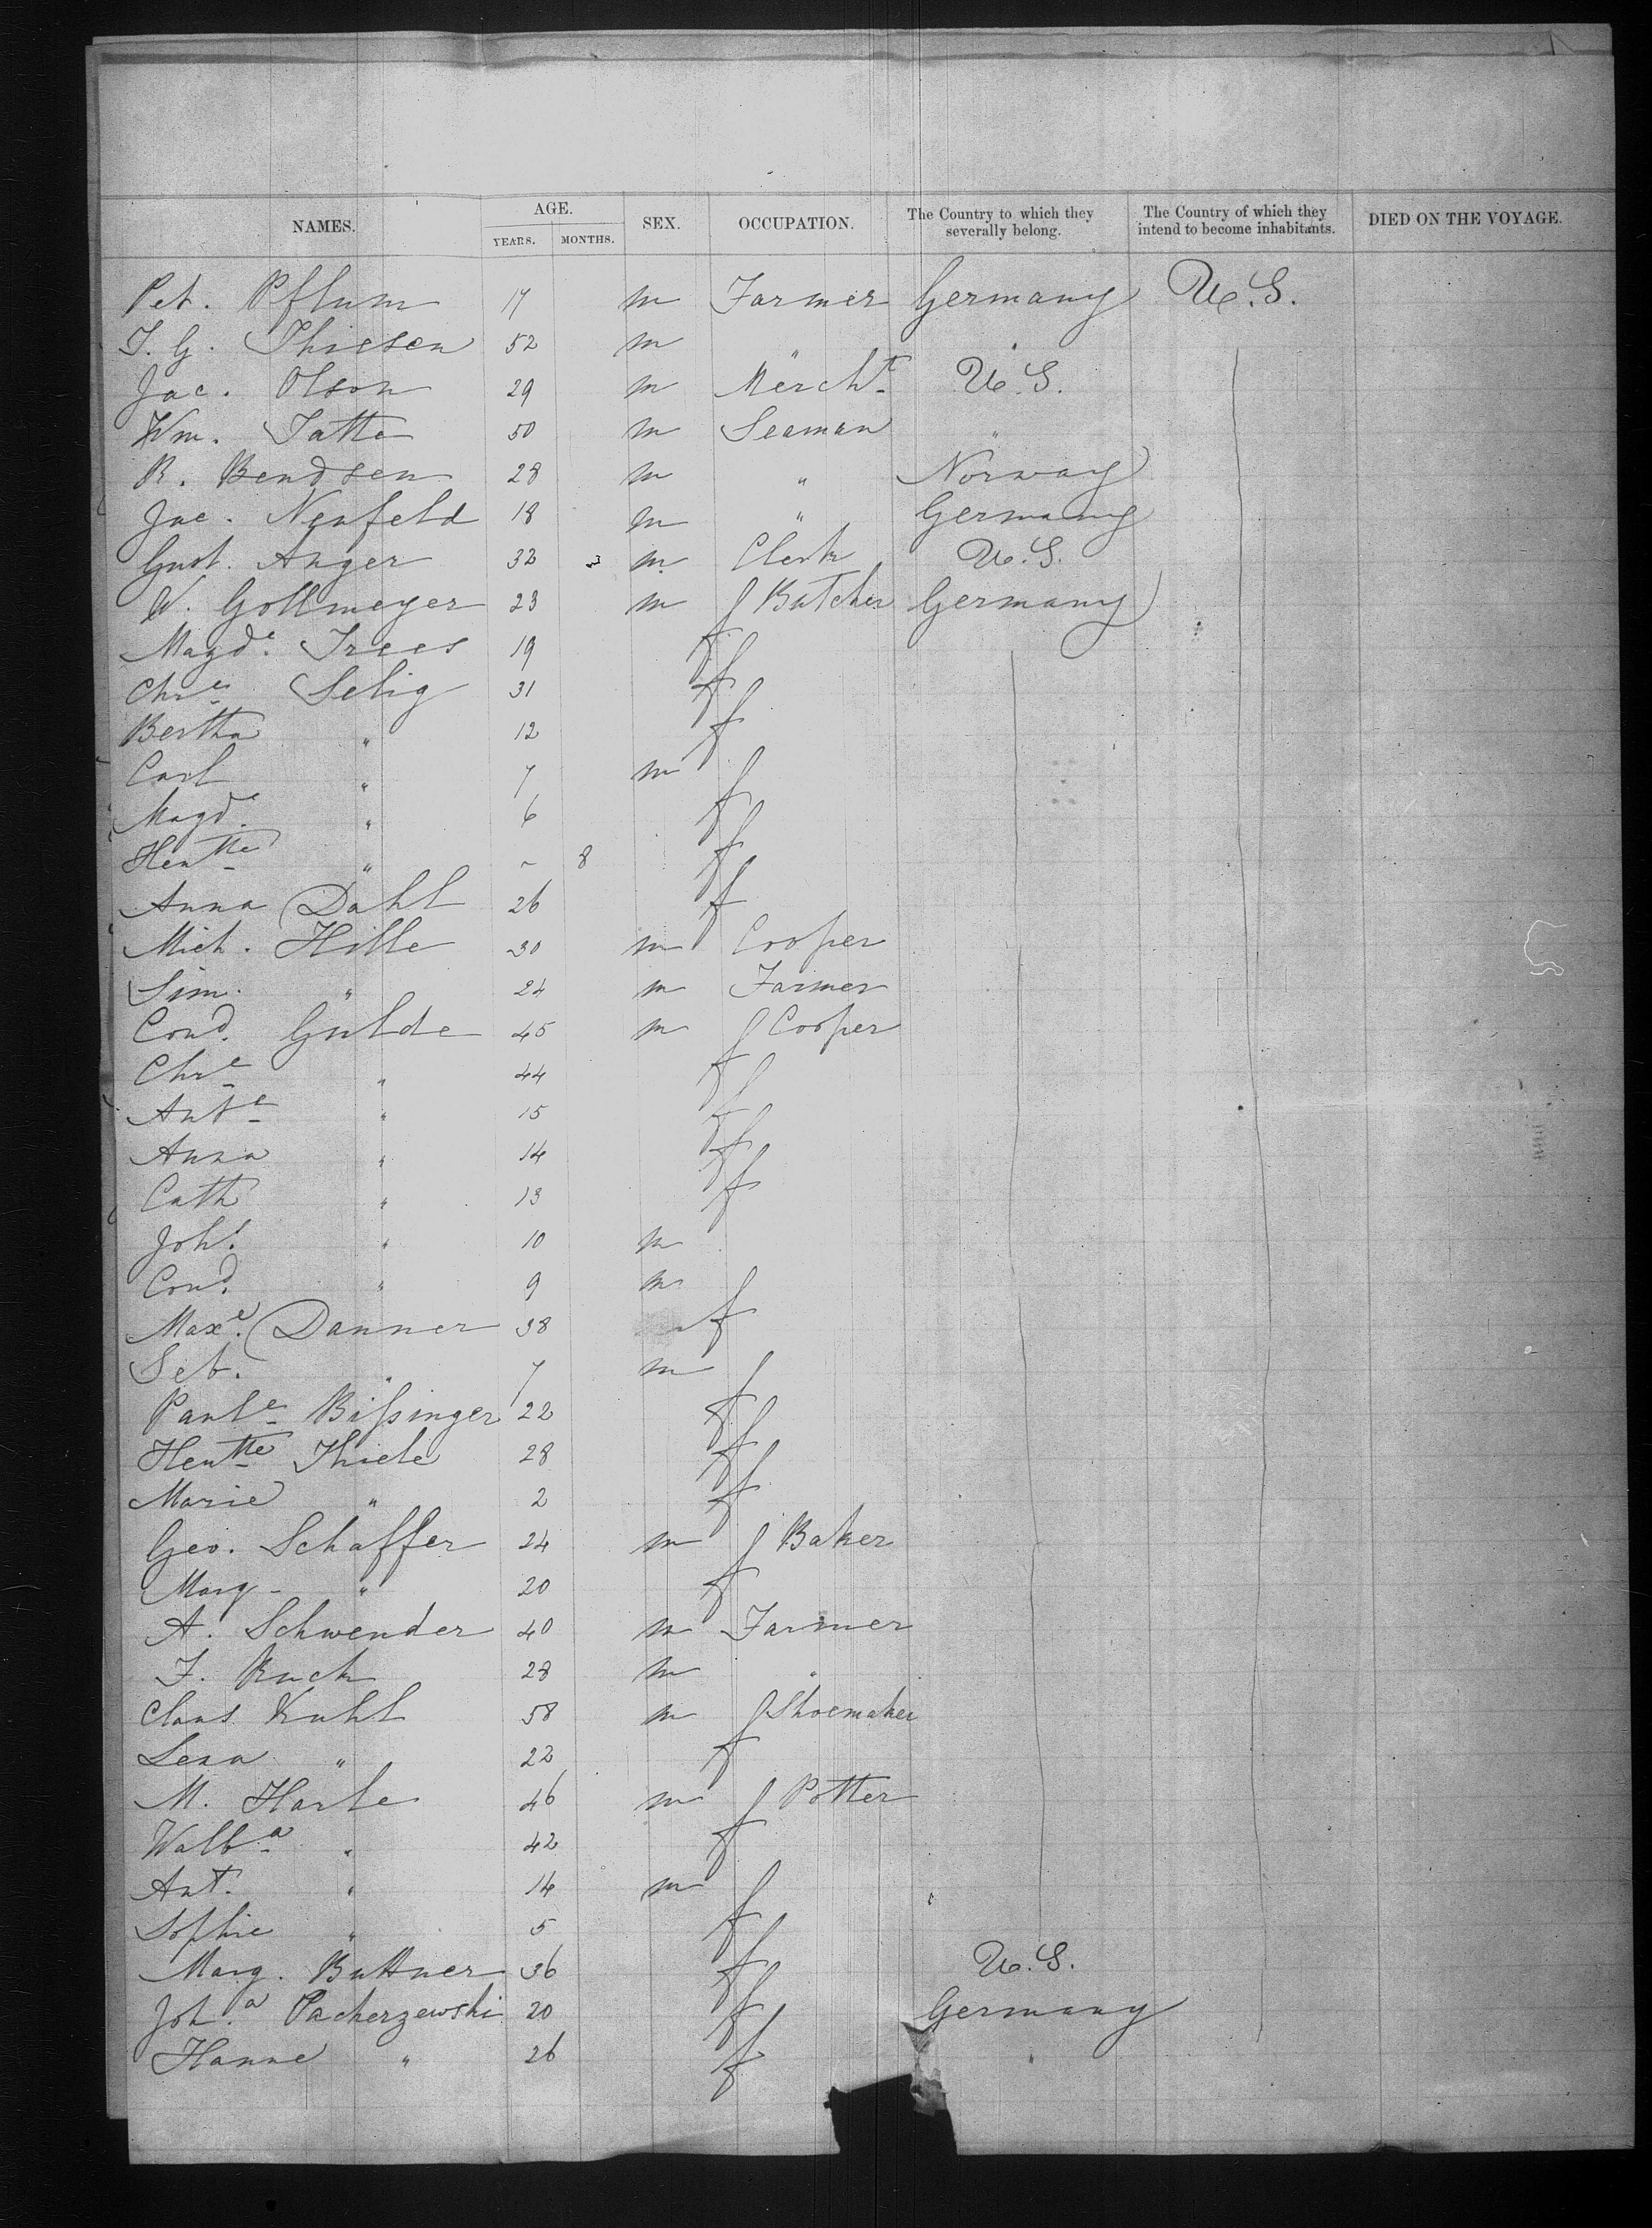 NAMES. AGE. YEARS. MONTHS. SEX. OCCUPATION. The Country to which they severally belong. The Country of which they intend to become inhabitants. DIED ON THE VOYAGE.
Pet. Pflum 17 m Farmer Germany U.S.
J. G. Thiesen 52 m " "
Jac. Olson 29 m Mercht U.S.
Wm. Tatte 50 m Seaman "
R. Bendsen 28 m " Norway
Jac. Neufeld 18 m " Germany
Gust. Anger 32 m Clerk U.S.
W. Gollmeyer 23 m Butcher Germany
Magde. Trees 19 f
Chre Selig 31 f
Bertha " 12 f
Carl " 7 m
Magde " 6 f
Hentte " - 8 f
Anna Dahl 26 f
Mich. Hille 30 m Cooper
Sim. " 24 m Farmer
Cond. Gulde 45 m Cooper
Chre " 44 f
Ante " 15 f
Anna " 14 f
Cath " 13 f
Joh. " 10 m
Cond. " 9 m
Maxe. Danner 38 f
Seb. " 7 m
Paule Bißinger 22 f
Hentte Thiele 28 f
Marie " 2 f
Geo. Schaffer 24 m Baker
Marg - " 20 f
A. Schwender 40 m Farmer
F. Ruck 28 m "
Claus Kuhl 58 m Shoemaker
Lena " 22 f
M. Harle 46 m Potter
Walba " 42 f
Ant. " 14 m
Sophie " 5 f
Marg. Buttner 36 f U.S.
Joh.a Pacherzewski 20 f Germany
Hanne " 26 f "